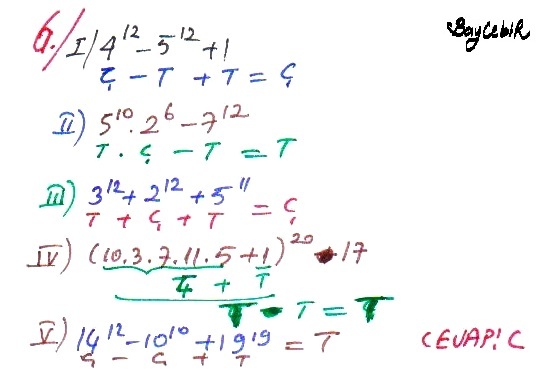 BayCebiR
6./ I) 4¹² - 5¹² + 1
Ç - T + T = Ç
II) 5¹⁰ . 2⁶ - 7¹²
T . Ç - T = T
III) 3¹² + 2¹² + 5¹¹
T + Ç + T = Ç
IV) (10.3.7.11.5 + 1)²⁰ - 17
Ç + T
T - T =
V) 14¹² - 10¹⁰ + 19¹⁹ = T
Ç - Ç + T
CEVAP: C